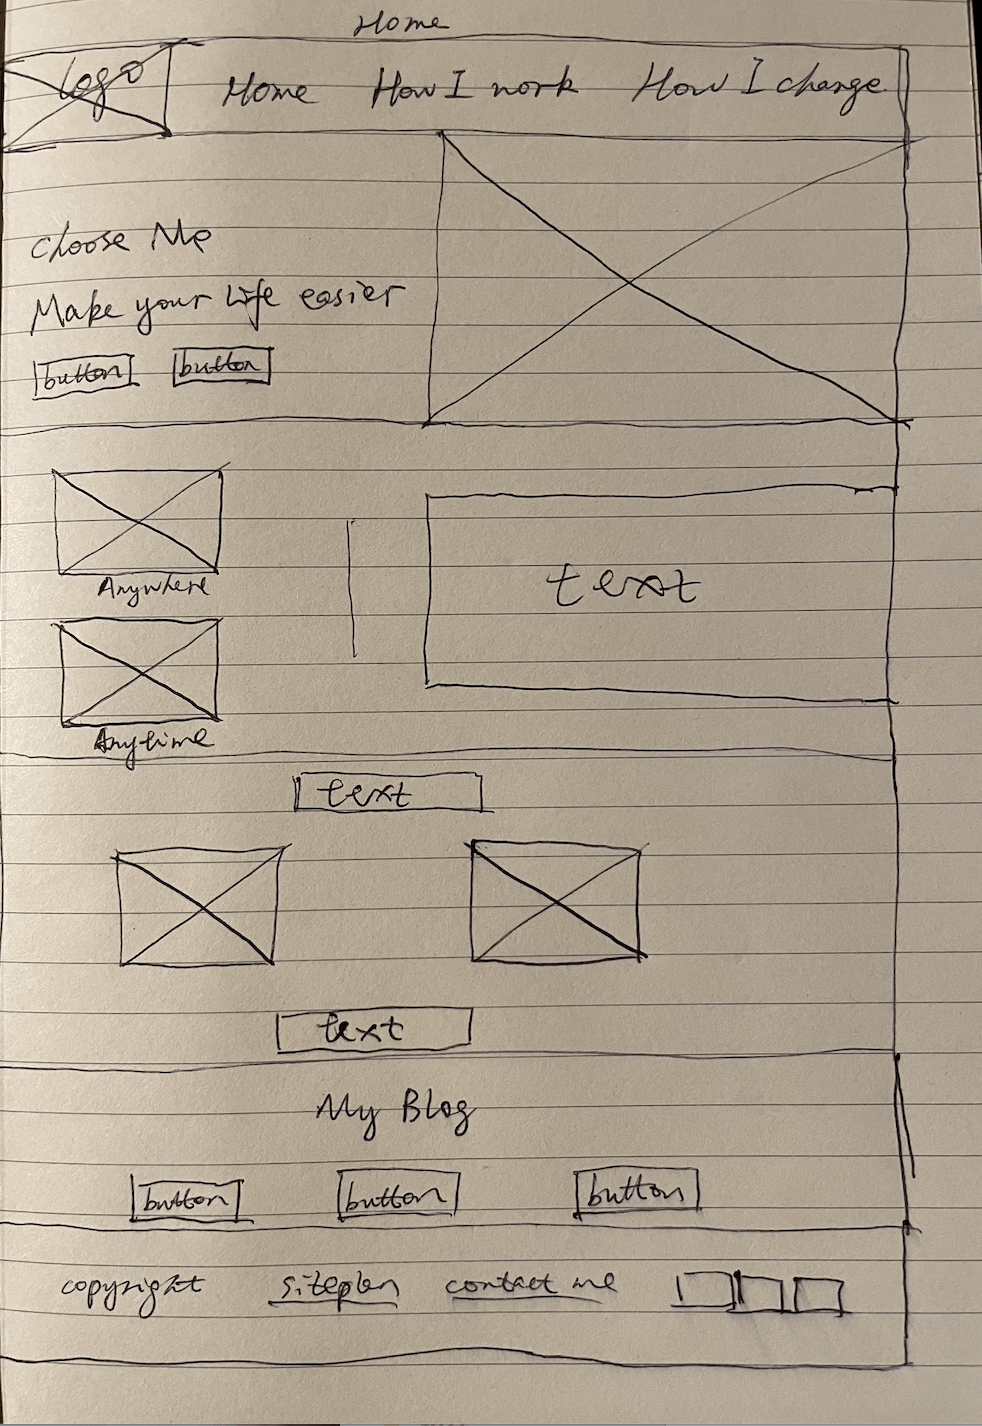 Home
Logo Home How I work How I change
Choose Me
Make your life easier
button button
Anywhere
text
Anytime
text
text
My Blog
button button button
copyright siteplan contact me